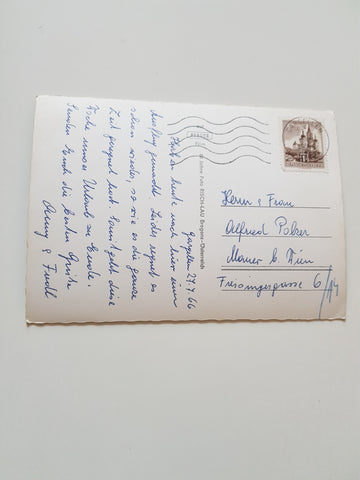 Gargellen 24.7.66
Haben heute nach hier einen
Ausflug gemacht. Leider regnet es
schon wieder, so wie es die ganze
Zeit geregnet hat. Somit geht diese
Woche unser Urlaub zu Ende.
Senden Euch die besten Grüße
Anny & Ferdl
Foto RISCH-LAU Bregenz-Österreich
Herrn & Frau
Alfred Polzer
Mauer b Wien
Freisingergasse 6/14